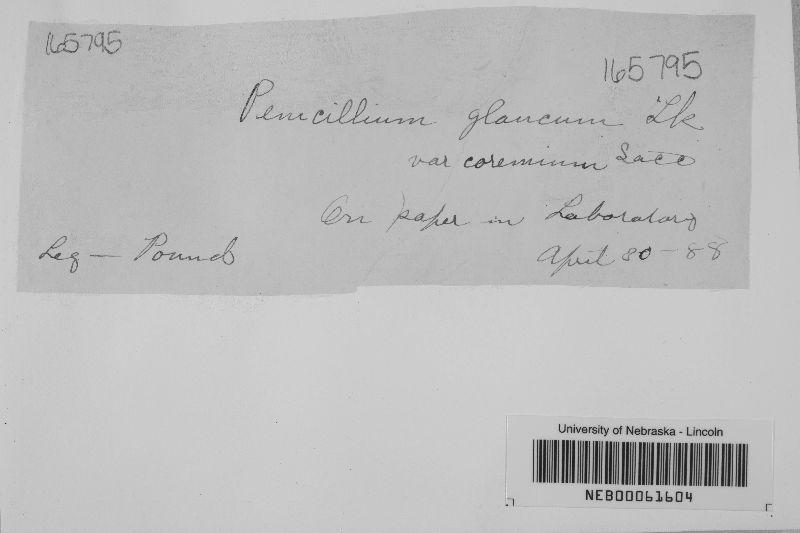 165795
165795
Penicillium glaucum Lk
var coremium Sacc
On paper in Laboratory
Leg — Pound
April 30 - 88
University of Nebraska - Lincoln
NEB00061604